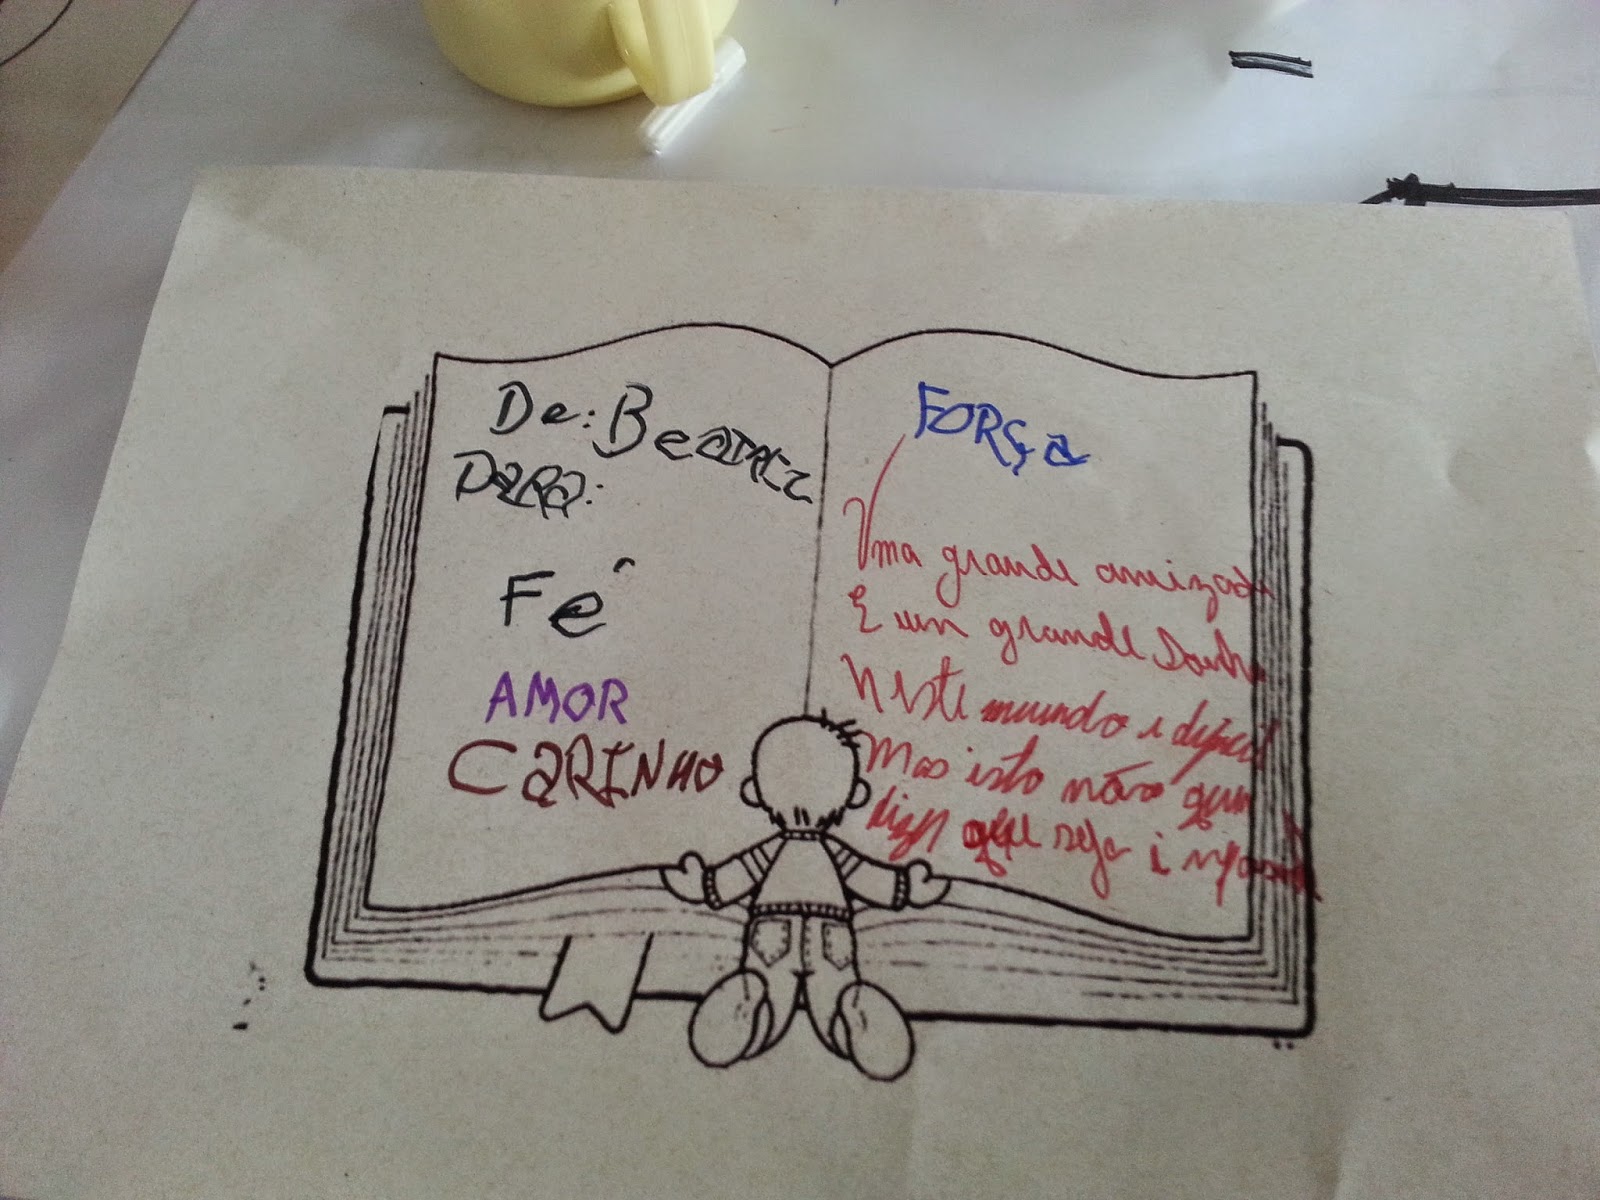 De: Beatriz
Para:
Fé
AMOR
CARINHO
FORÇa
Uma grande amizade
E um grande Sonho
Neste mundo e dificil
Mas isto não quer
dizer que seja i